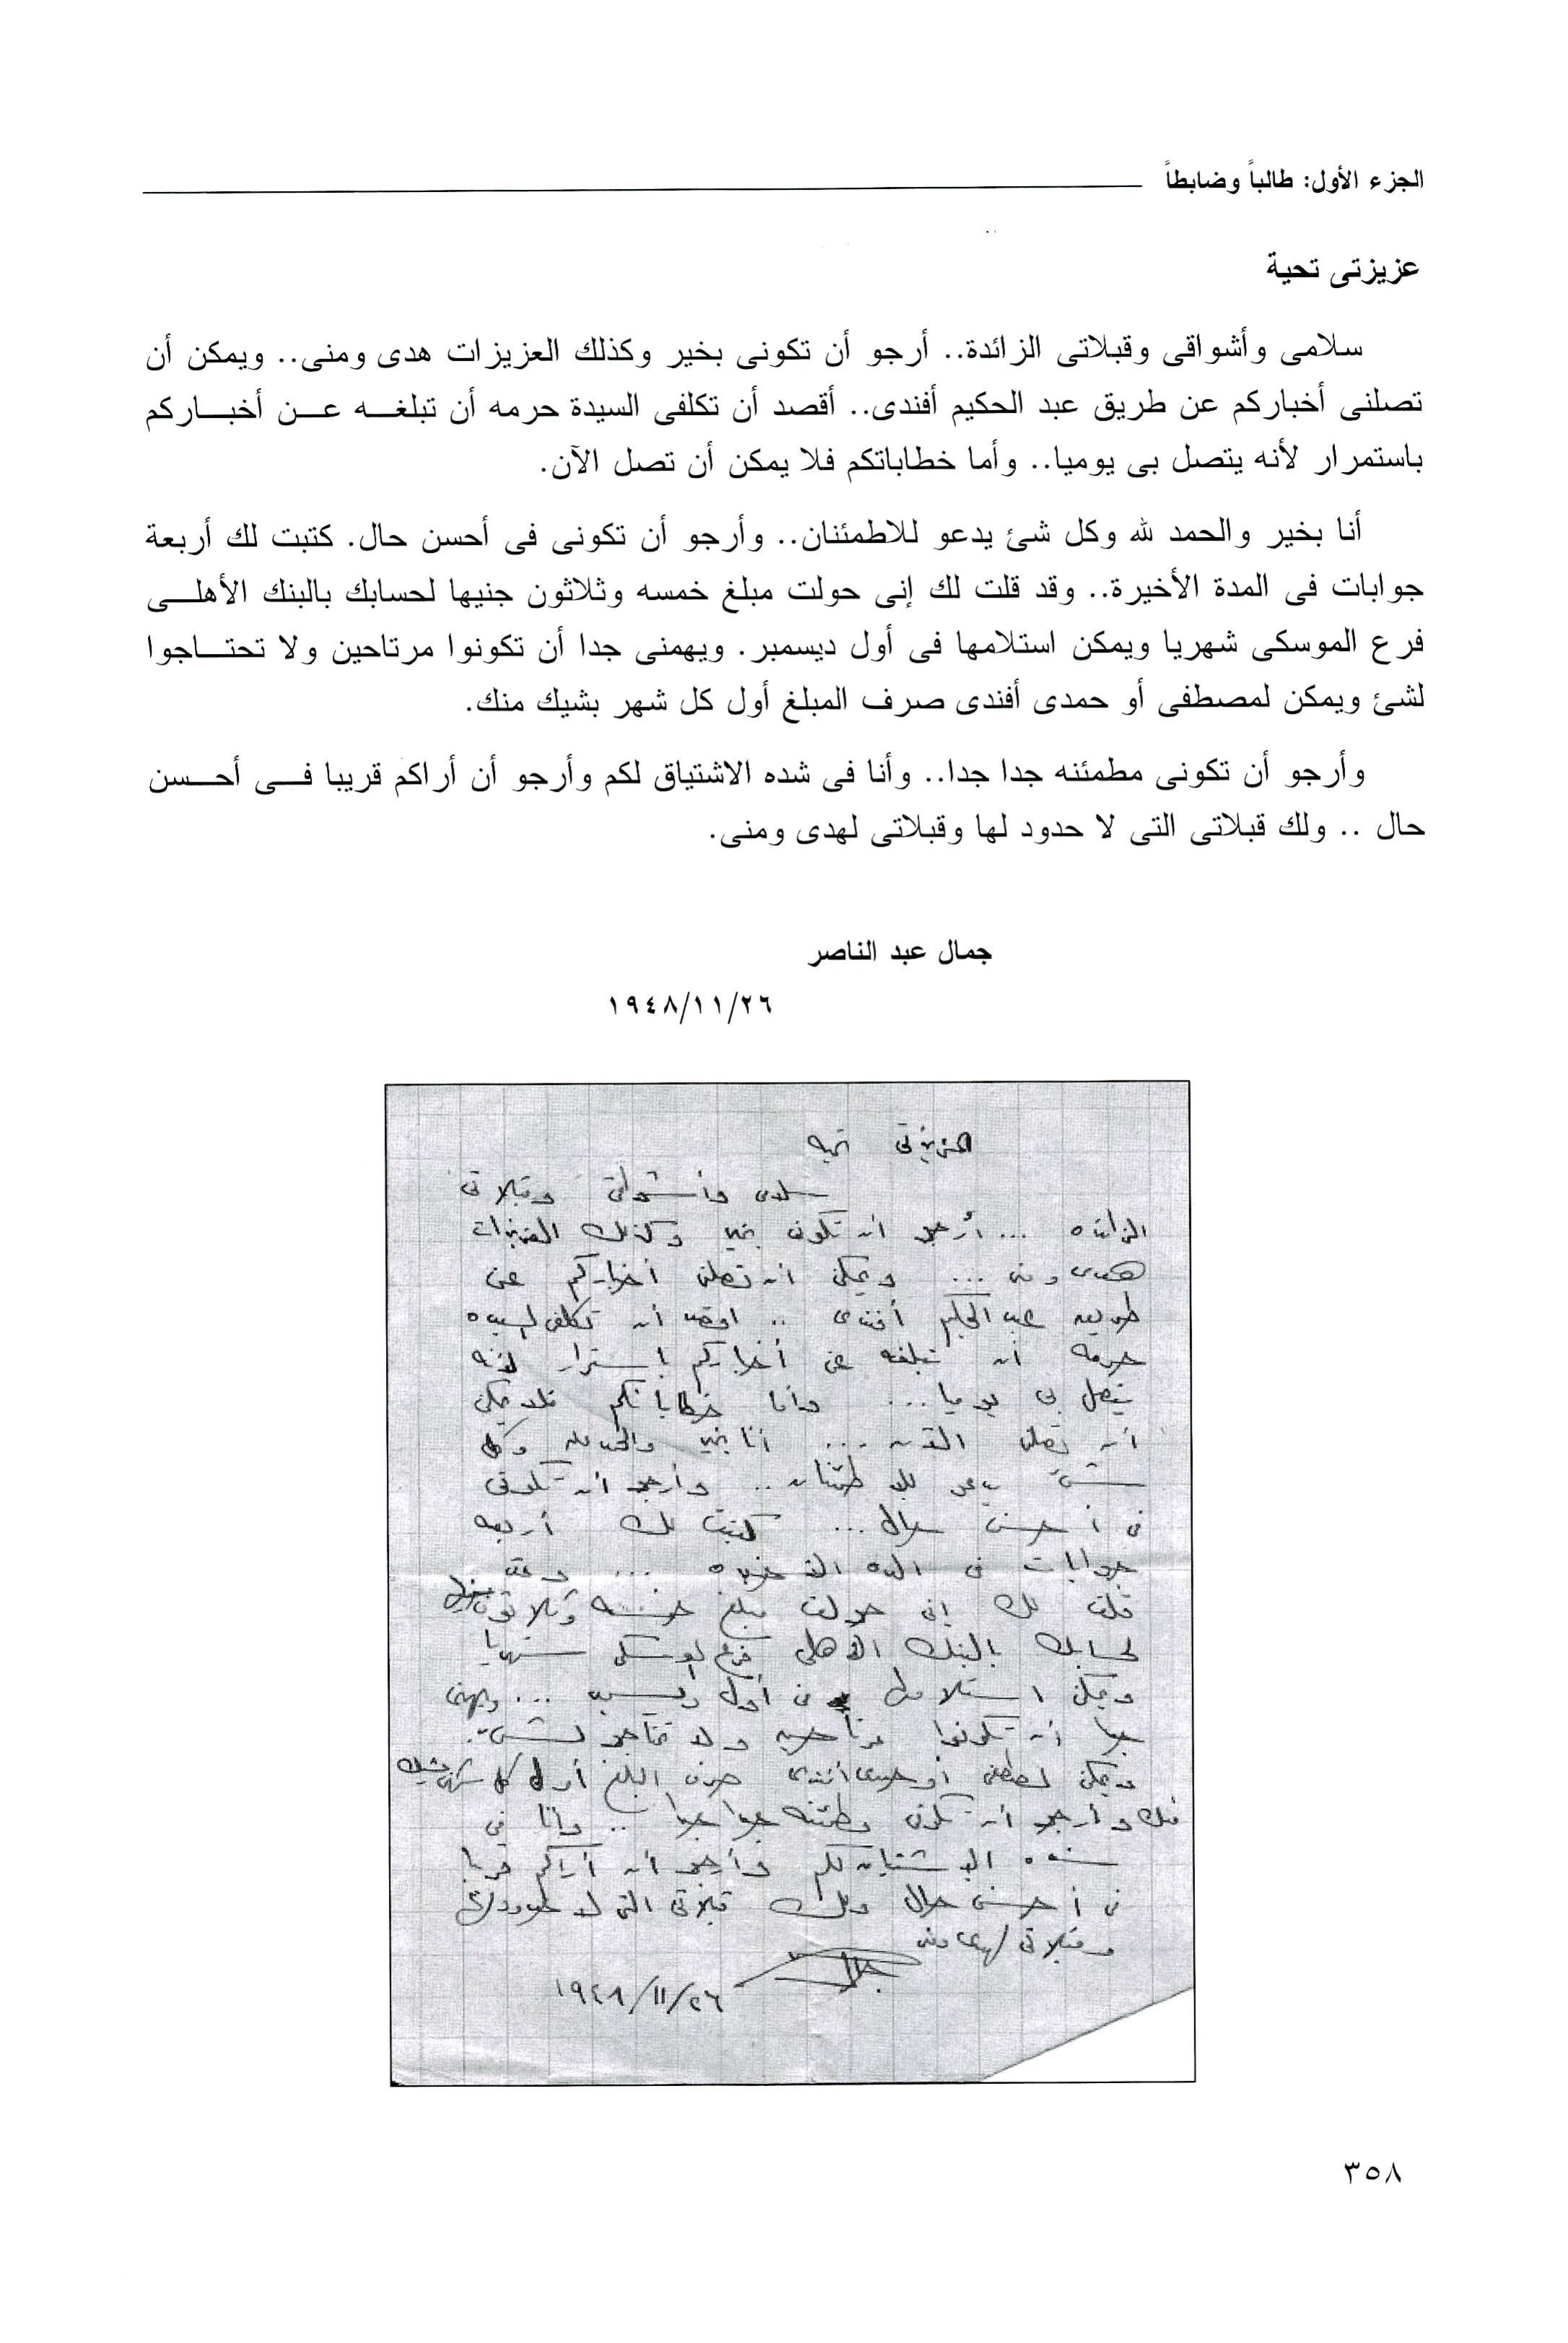 الجزء الأول: طالباً وضابطاً
عزيزتى تحية
سلامى وأشواقى وقبلاتى الزائدة.. أرجو أن تكونى بخير وكذلك العزيزات هدى ومنى.. ويمكن أن
تصلنى أخباركم عن طريق عبد الحكيم أفندى.. أقصد أن تكلفى السيدة حرمه أن تبلغه عن أخباركم
باستمرار لأنه يتصل بى يوميا.. وأما خطاباتكم فلا يمكن أن تصل الآن.
أنا بخير والحمد لله وكل شئ يدعو للاطمئنان.. وأرجو أن تكونى فى أحسن حال. كتبت لك أربعة
جوابات فى المدة الأخيرة.. وقد قلت لك إنى حولت مبلغ خمسه وثلاثون جنيها لحسابك بالبنك الأهلى
فرع الموسكى شهريا ويمكن استلامها فى أول ديسمبر. ويهمنى جدا أن تكونوا مرتاحين ولا تحتاجوا
لشئ ويمكن لمصطفى أو حمدى أفندى صرف المبلغ أول كل شهر بشيك منك.
وأرجو أن تكونى مطمئنه جدا جدا.. وأنا فى شده الاشتياق لكم وأرجو أن أراكم قريبا فى أحسن
حال .. ولك قبلاتى التى لا حدود لها وقبلاتى لهدى ومنى.
جمال عبد الناصر
١٩٤٨/١١/٢٦
عزيزتى تحيه
سلامى وأشواقى وقبلاتى
الزائده ... أرجو أن تكونى بخير وكذلك العزيزات
هدى ومنى ... ويمكن أن تصلنى أخباركم عن
طريق عبد الحكيم أفندى .. اقصد أن تكلفى السيده
حرمه أن تبلغه عن أخباركم باستمرار لأنه
يتصل بى يوميا ... وأما خطاباتكم فلا يمكن
أن تصلنى الآن ... أنا بخير والحمد لله وكل
شئ يدعو للاطمئنان .. وأرجو أن تكونى
فى أحسن حال ... كتبت لك أربعه
جوابات فى المده الأخيره ... وقد
قلت لك إنى حولت مبلغ خمسه وثلاثون جنيها
لحسابك بالبنك الأهلى فرع الموسكى شهريا
ويمكن استلامها فى أول ديسمبر ... ويهمنى
جدا أن تكونوا مرتاحين ولا تحتاجوا لشئ.
ويمكن لمصطفى أو حمدى أفندى صرف المبلغ أول كل شهر بشيك
منك وأرجو أن تكونى مطمئنه جدا جدا .. وأنا فى
شده الاشتياق لكم وأرجو أن أراكم قريبا
فى أحسن حال ولك قبلاتى التى لا حدود لها
وقبلاتى لهدى ومنى
جمال
١٩٤٨/١١/٢٦
٣٥٨